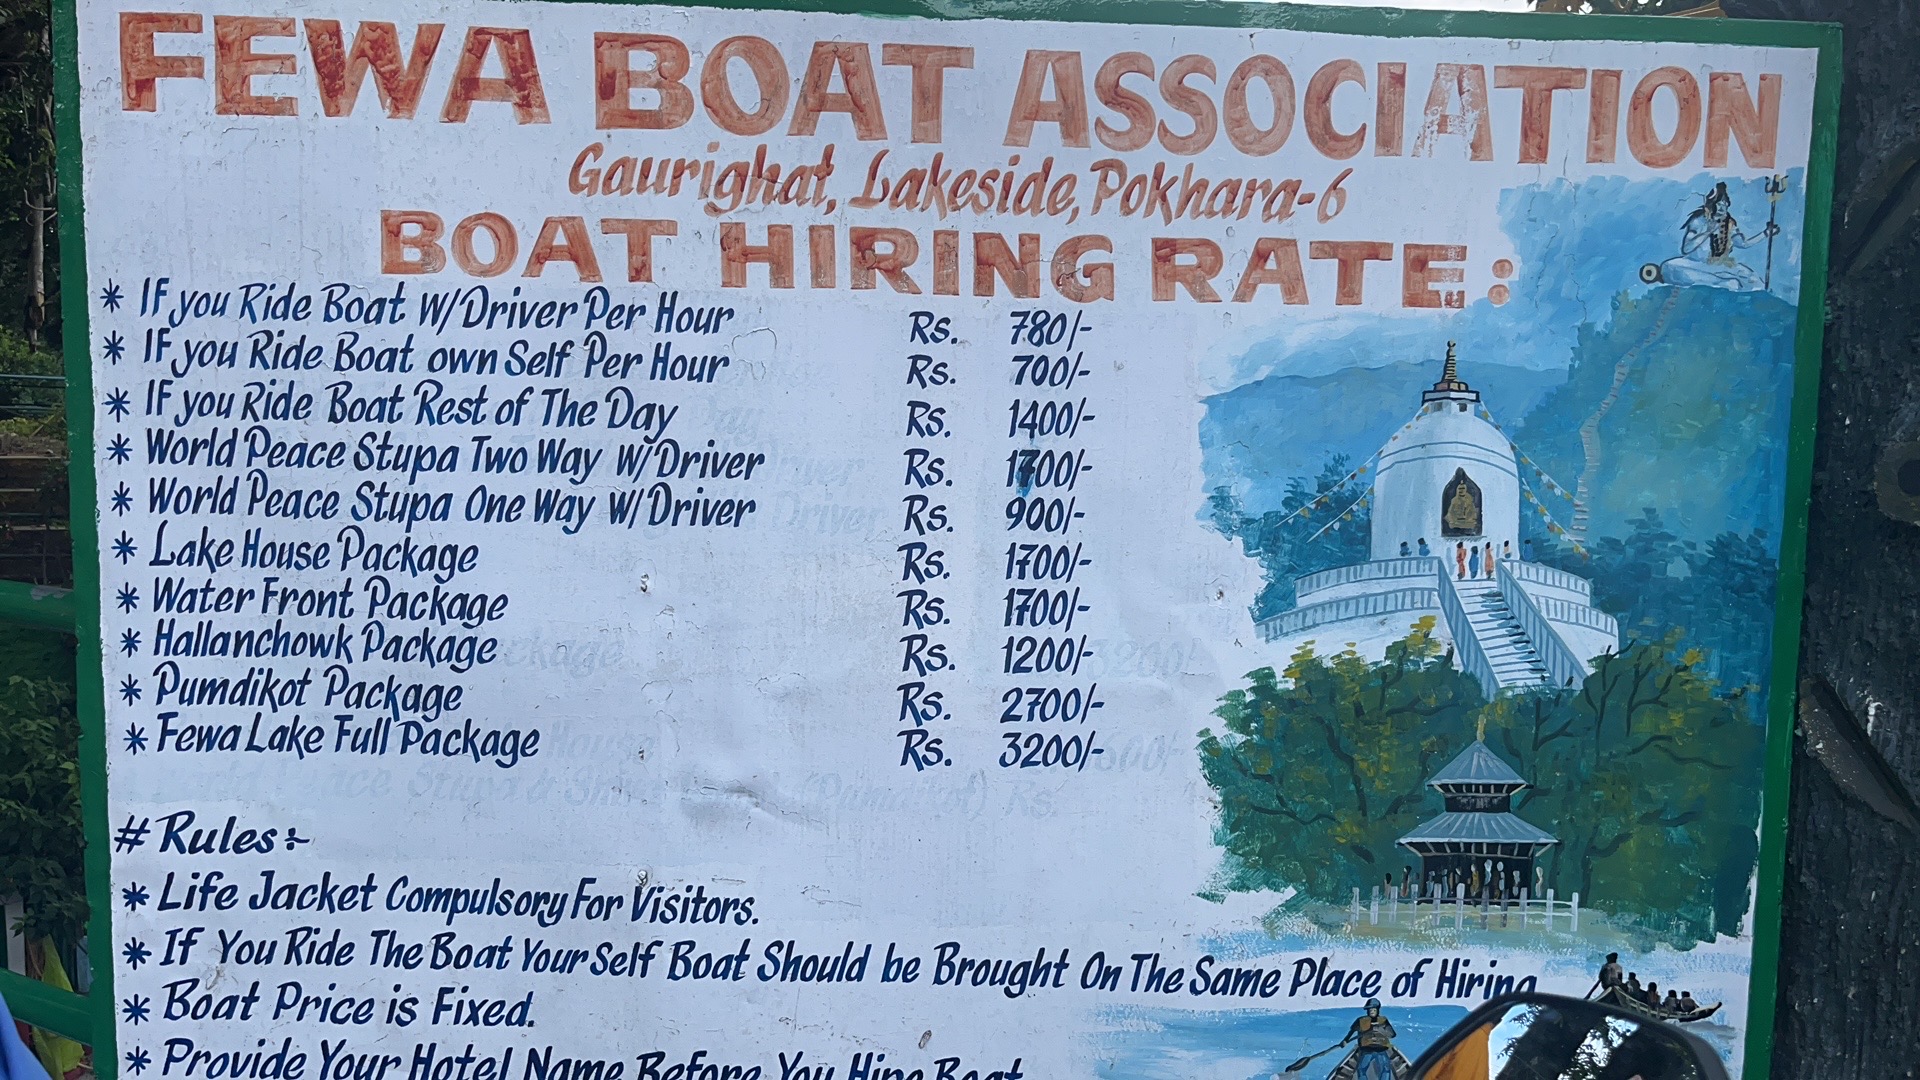 FEWA BOAT ASSOCIATION
Gaurighat, Lakeside, Pokhara-6
BOAT HIRING RATE:
* IF you Ride Boat W/Driver Per Hour Rs. 780/-
* IF you Ride Boat own Self Per Hour Rs. 700/-
* IF you Ride Boat Rest of The Day Rs. 1400/-
* World Peace Stupa Two Way W/Driver Rs. 1700/-
* World Peace Stupa One Way W/Driver Rs. 900/-
* Lake House Package Rs. 1700/-
* Water Front Package Rs. 1700/-
* Hallanchowk Package Rs. 1200/-
* Pumdikot Package Rs. 2700/-
* Fewa Lake Full Package Rs. 3200/-
# Rules:-
* Life Jacket Compulsory For Visitors.
* If You Ride The Boat Your Self Boat Should be Brought On The Same Place of Hiring
* Boat Price is Fixed.
* Provide Your Hotel Name Before You Hire Boat